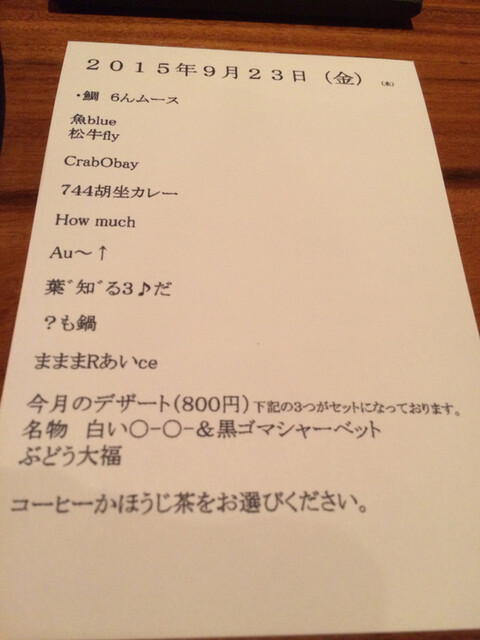 ２０１５年９月２３日（金）（水）
・鯛　6んムース
魚blue
松牛fly
CrabObay
744胡坐カレー
How much
Au～↑
葉゛知゛る3♪だ
？も鍋
まままRあいce
今月のデザート(800円)下記の3つがセットになっております。
名物　白い〇-〇-＆黒ゴマシャーベット
ぶどう大福
コーヒーかほうじ茶をお選びください。